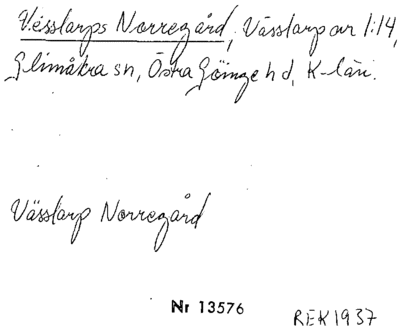 Vesslarps Norregård, Vässlarp ar 1:14,
Glimåkra sn, Östra Göinge hd, K-län.
Vässlarp Norregård
Nr 13576
REK1937